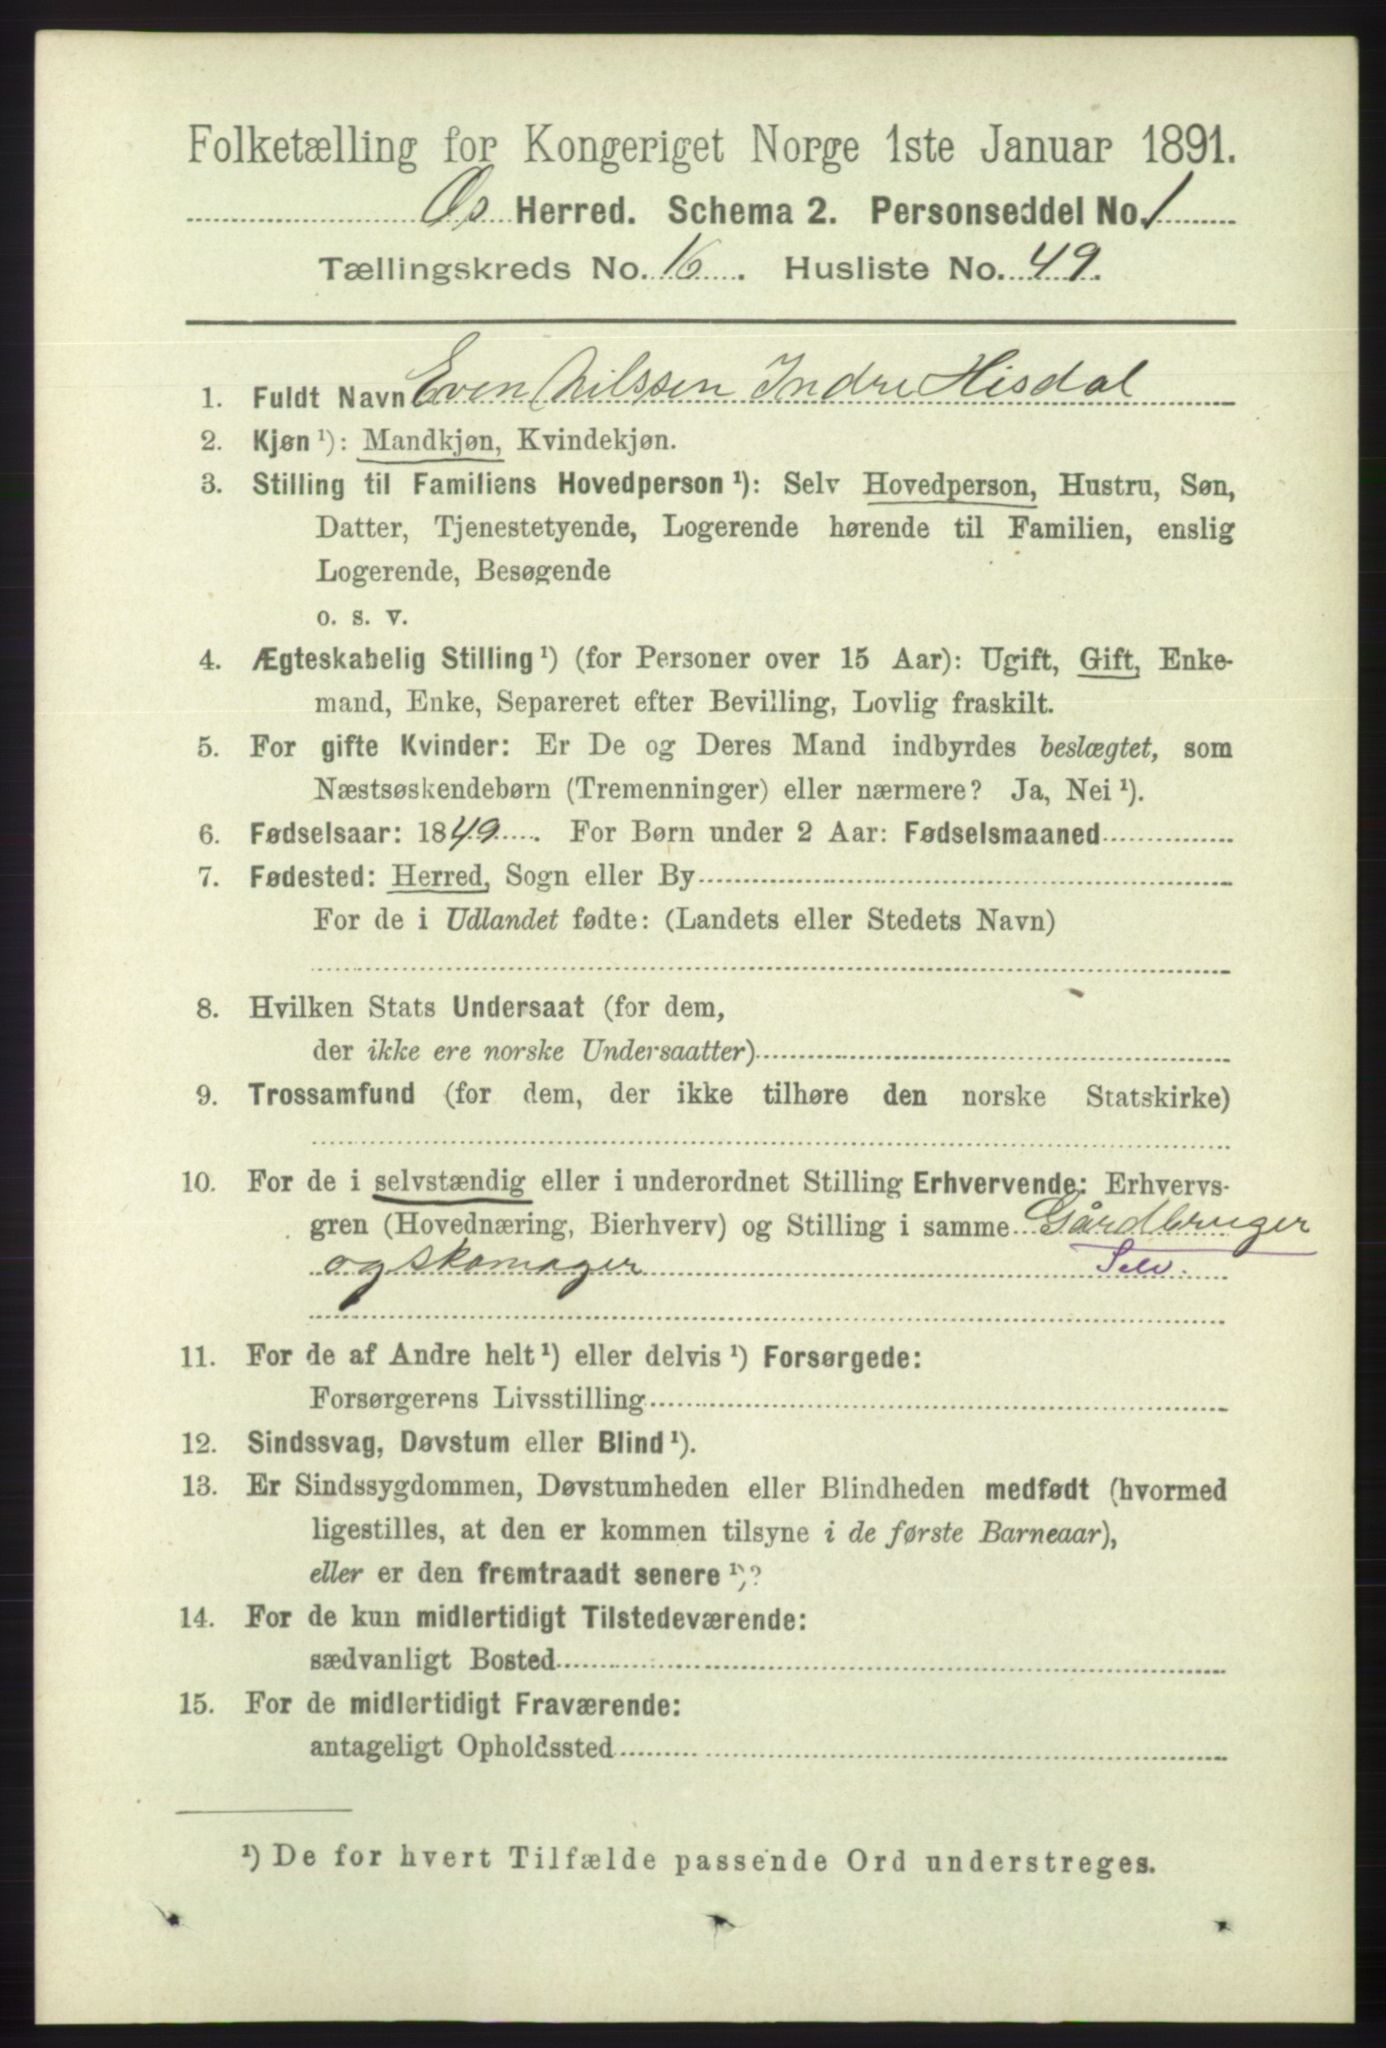 Folketælling for Kongeriget Norge 1ste Januar 1891.
Os Herred. Schema 2. Personseddel No. 1
Tællingskreds No. 16. Husliste No. 49.
1. Fuldt Navn Even Nilssen Indre Hisdal
2. Kjøn ¹): Mandkjøn, Kvindekjøn.
3. Stilling til Familiens Hovedperson ¹): Selv Hovedperson, Hustru, Søn,
Datter, Tjenestetyende, Logerende hørende til Familien, enslig
Logerende, Besøgende
o. s. v.
4. Ægteskabelig Stilling ¹) (for Personer over 15 Aar): Ugift, Gift, Enke-
mand, Enke, Separeret efter Bevilling, Lovlig fraskilt.
5. For gifte Kvinder: Er De og Deres Mand indbyrdes beslægtet, som
Næstsøskendebørn (Tremenninger) eller nærmere? Ja, Nei ¹).
6. Fødselsaar: 1849. For Børn under 2 Aar: Fødselsmaaned
7. Fødested: Herred, Sogn eller By
For de i Udlandet fødte: (Landets eller Stedets Navn)
8. Hvilken Stats Undersaat (for dem,
der ikke ere norske Undersaatter)
9. Trossamfund (for dem, der ikke tilhøre den norske Statskirke)
10. For de i selvstændig eller i underordnet Stilling Erhvervende: Erhvervs-
gren (Hovednæring, Bierhverv) og Stilling i samme Gårdbruger
og skomager Selv.
11. For de af Andre helt ¹) eller delvis ¹) Forsørgede:
Forsørgerens Livsstilling
12. Sindssvag, Døvstum eller Blind ¹).
13. Er Sindssygdommen, Døvstumheden eller Blindheden medfødt (hvormed
ligestilles, at den er kommen tilsyne i de første Barneaar),
eller er den fremtraadt senere ¹)?
14. For de kun midlertidigt Tilstedeværende:
sædvanligt Bosted
15. For de midlertidigt Fraværende:
antageligt Opholdssted
¹) De for hvert Tilfælde passende Ord understreges.